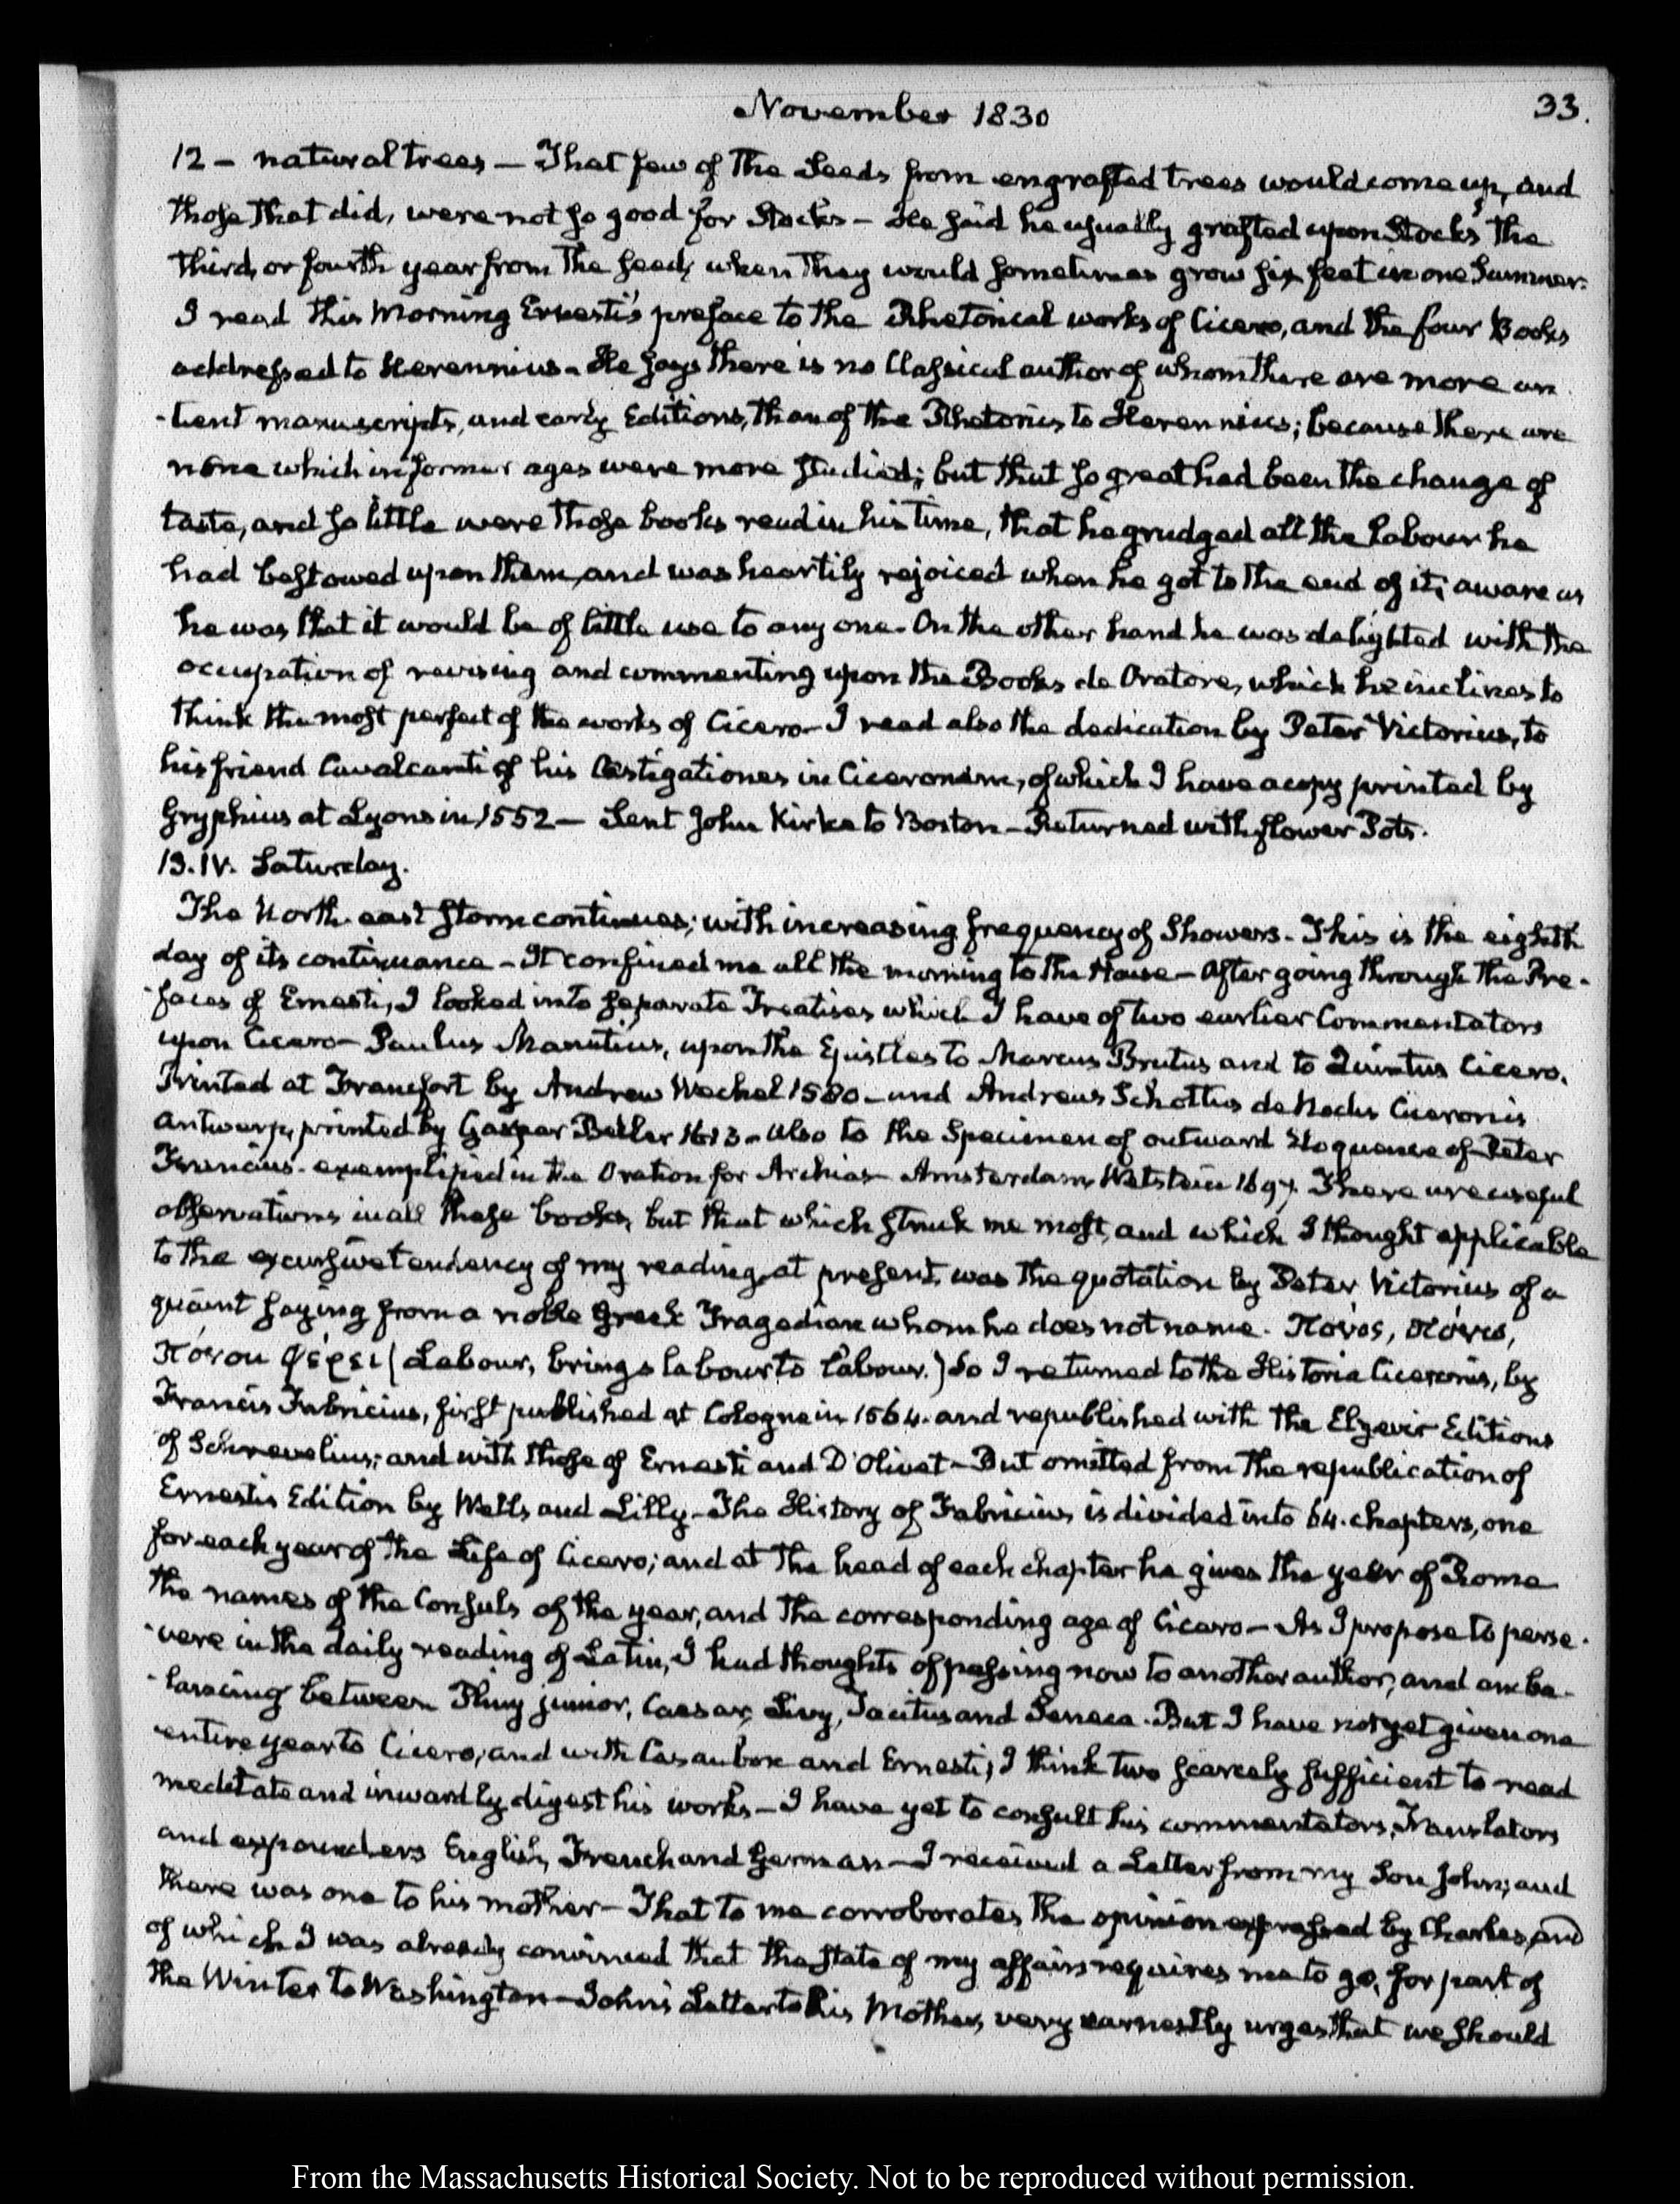 November 1830
33.
12 - natural trees - That few of the Seeds from engrafted trees would come up, and
those that did, were not so good for Stocks - He said he usually grafted upon Stocks the
third, or fourth year from the seed, when they would sometimes grow six feet in one Summer.
I read this Morning Ernesti's preface to the Rhetorical works of Cicero, and the four Books
addressed to Herennius - He says there is no Classical author of whom there are more an
-tient manuscripts, and early Editions, than of the Rhetorics to Herennius; because there are
none which in former ages were more studied; but that so great had been the change of
taste, and so little were those books read in his time, that he grudged all the labour he
had bestowed upon them, and was heartily rejoiced when he got to the end of it; aware as
he was that it would be of little use to any one - On the other hand he was delighted with the
occupation of revising and commenting upon the Books de Oratore, which he inclines to
think the most perfect of the works of Cicero - I read also the dedication by Peter Victorius, to
his friend Cavalcanti of his Castigationes in Ciceronem, of which I have a copy printed by
Gryphius at Lyons in 1552 - Sent John Kirke to Boston - Returned with flower Pots.
13. IV. Saturday.
The North-east storm continues; with increasing frequency of Showers - This is the eighth
day of its continuance - It confined me all the morning to the House - After going through the Pre-
-faces of Ernesti, I looked into separate Treatises which I have of two earlier Commentators
upon Cicero - Paulus Manutius, upon the Epistles to Marcus Brutus and to Quintus Cicero.
Printed at Francfort by Andrew Wechel 1580 - and Andreas Schottus de Nodis Ciceronis
Antwerp, printed by Gaspar Beller 1613 - also to the Specimen of outward Eloquence of Peter
Francius - exemplified in the Oration for Archias - Amsterdam, Wetstein 1697. There are useful
observations in all these books, but that which struck me most, and which I thought applicable
to the excursive tendency of my reading at present, was the quotation by Peter Victorius of a
quaint saying from a noble Greek Tragedian whom he does not name. Πόνος, πόνῳ,
Πόνον φέρει (Labour, brings labour to labour.) So I returned to the Historia Ciceronis, by
Francis Fabricius, first published at Cologne in 1564. and republished with the Elzevir Editions
of Schrevelius; and with those of Ernesti and D'Olivet - But omitted from the republication of
Ernesti's Edition by Wells and Lilly - The History of Fabricius is divided into 64. chapters, one
for each year of the Life of Cicero; and at the head of each chapter he gives the year of Rome
the names of the Consuls of the year, and the corresponding age of Cicero - As I propose to perse-
-vere in the daily reading of Latin, I had thoughts of passing now to another author, and am ba-
-lancing between Pliny junior, Caesar, Livy, Tacitus and Seneca. But I have not yet given one
entire year to Cicero; and with Casaubon and Ernesti, I think two scarcely sufficient to read
meditate and inwardly digest his works - I have yet to consult his commentators, Translators
and expounders English, French and German - I received a Letter from my Son John; and
there was one to his mother - That to me corroborates the opinion expressed by Charles, and
of which I was already convinced that the state of my affairs requires me to go, for part of
the Winter to Washington - John's Letter to his Mother, very earnestly urges that we should
From the Massachusetts Historical Society. Not to be reproduced without permission.